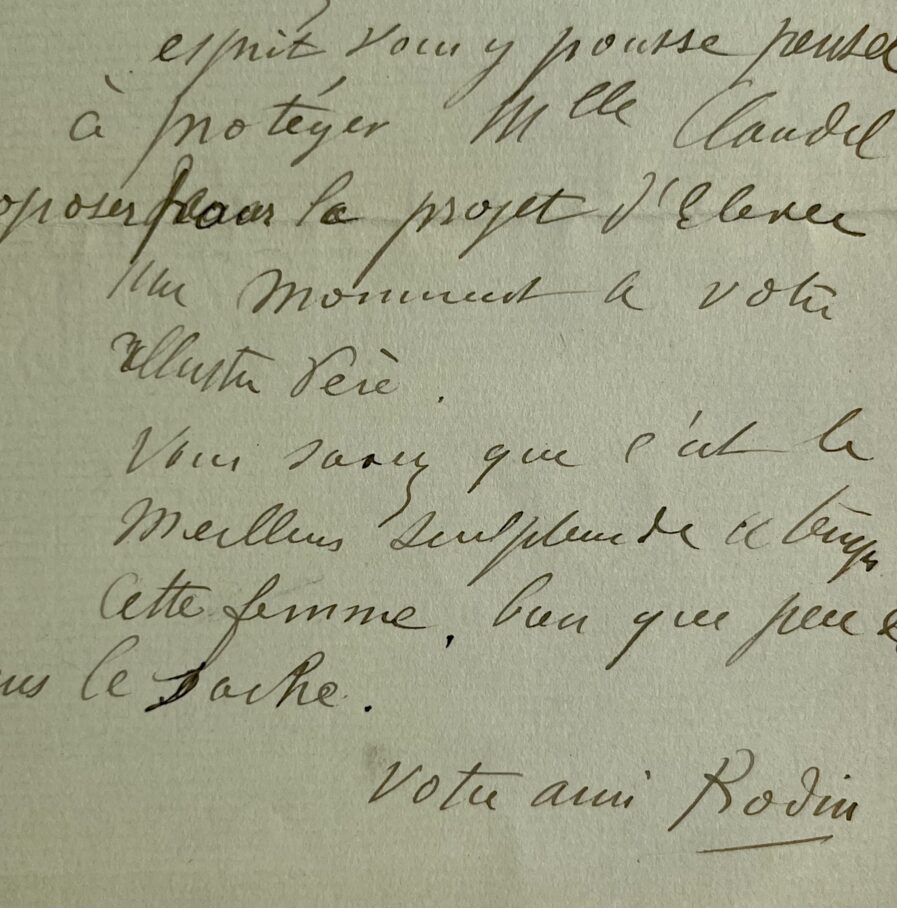 esprit vous y pousse pensez
à protéger Mlle Claudel
oposer pour le projet d'Elever
un monument a votre
illustre Père.
Vous savez que c'est le
Meilleur sculpteur de ce temps
Cette femme, bien que peu
le sache.
Votre ami Rodin